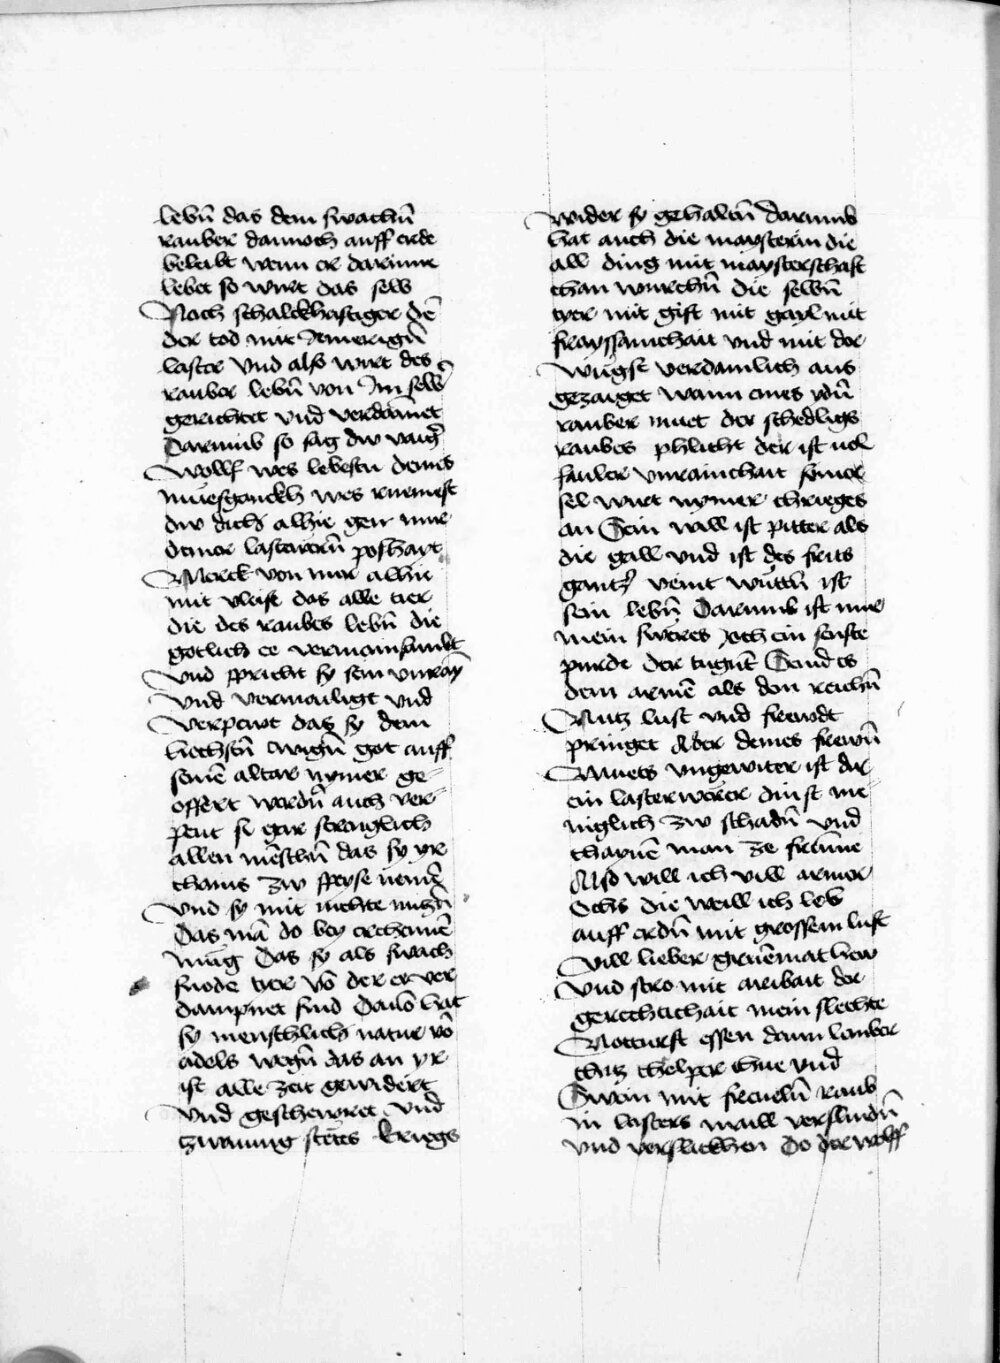 lebn̄ das dem swachn̄
rauber dannoch auff erde
beleibt wenn er darinne
lebet so wirt das selb
Nach schalckhaftiger dē
der tod mit Jemerign̄
laster Vnd also wirt des
rauber lebn̄ von Im selb
gerichtet vnd verdamet
Darumb so sag dw
Wollf wes lebestu deines
muesganckh wes ruemest
dw dich alhie gen mir
deiner lasterern̄ poshait
Merck von mir alhie
mit vleiss das alle tier
die des raubes lebn̄ die
gotlich ee vermainsambt
Vnd spricht sy sein vnrayn
Vnd vermailigt vnd
Verpewt das sy dem
hechstn̄ ewign̄ got auff
seinē altar nymer ge=
offert werdn̄ auch ver=
peut si gar strenglich
allen mēschn̄ das sy yr
chains zw speyse nemē
Vnd sy mit nichte nutzn̄
Das mā do bey erchennē
mug Das sy als swach
snode tier vō der er ver
dampnet sind Dauō hat
sy menschlich natur vō
adels wegn̄ das an yr
ist alle zeit gewidert
Vnd geschewret Vnd
zwainug stetes kriegs
wider sy gehaltn̄ darumb
hat auch die maysterin die
all ding mit maysterschaft
chan wurchn̄ die selbn̄
tyer mit gift mit gayl mit
frayssamchait vnd mit der
Wungst verdamlich aus
gezaiget wann eines ydn̄
rauber muet der schedligs
raubes phlicht der ist uol
fauler vnrainchait seiner
sel wirt nymer chrieges
an Sein will ist pitter als
die gall vnd ist des frits
gantz veint wuttn̄ ist
sein lebn̄ Darumb ist mir
mein swēres Joch ein senfte
purde der tugnt Seind es
dem armē als den reichn̄
Nutz lust vnd frewdt
pringet Aber deines frewn̄
Muets vngewiter ist dir
ein lasterwerer dinst me
niglich zw schadn̄ vnd
chaynē man ze frūme
Also will ich vill armer
Ochs die weill ich leb
auff erdn̄ mit grossem lust
Vill lieber gruēmat hew
Vnd stro mit aribait der
gerechtichait mein slechte
Notturft essen dann lember
chitz chelper chue vnd
Swein mit freueln̄ raub
in lasters maill verslindn̄
vnd verslickhen Do der wolff